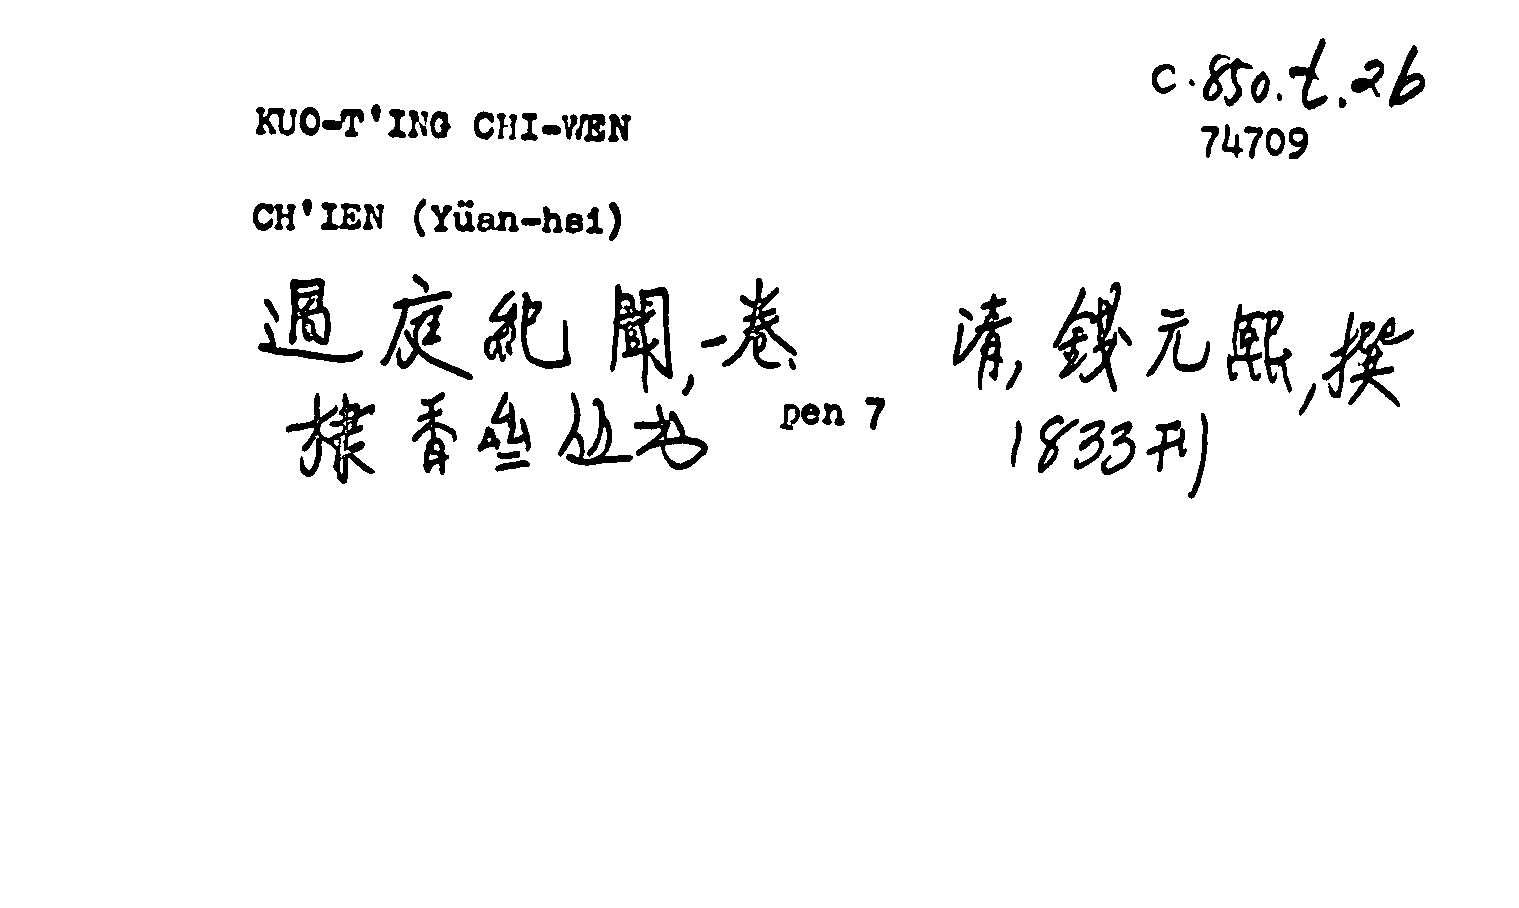 c.850.t.26
74709
KUO-T'ING CHI-WEN
CH'IEN (Yüan-hsi)
過庭紀聞, 一卷 清, 錢元熙, 撰
棣香叄丛书 pen 7 1833刊